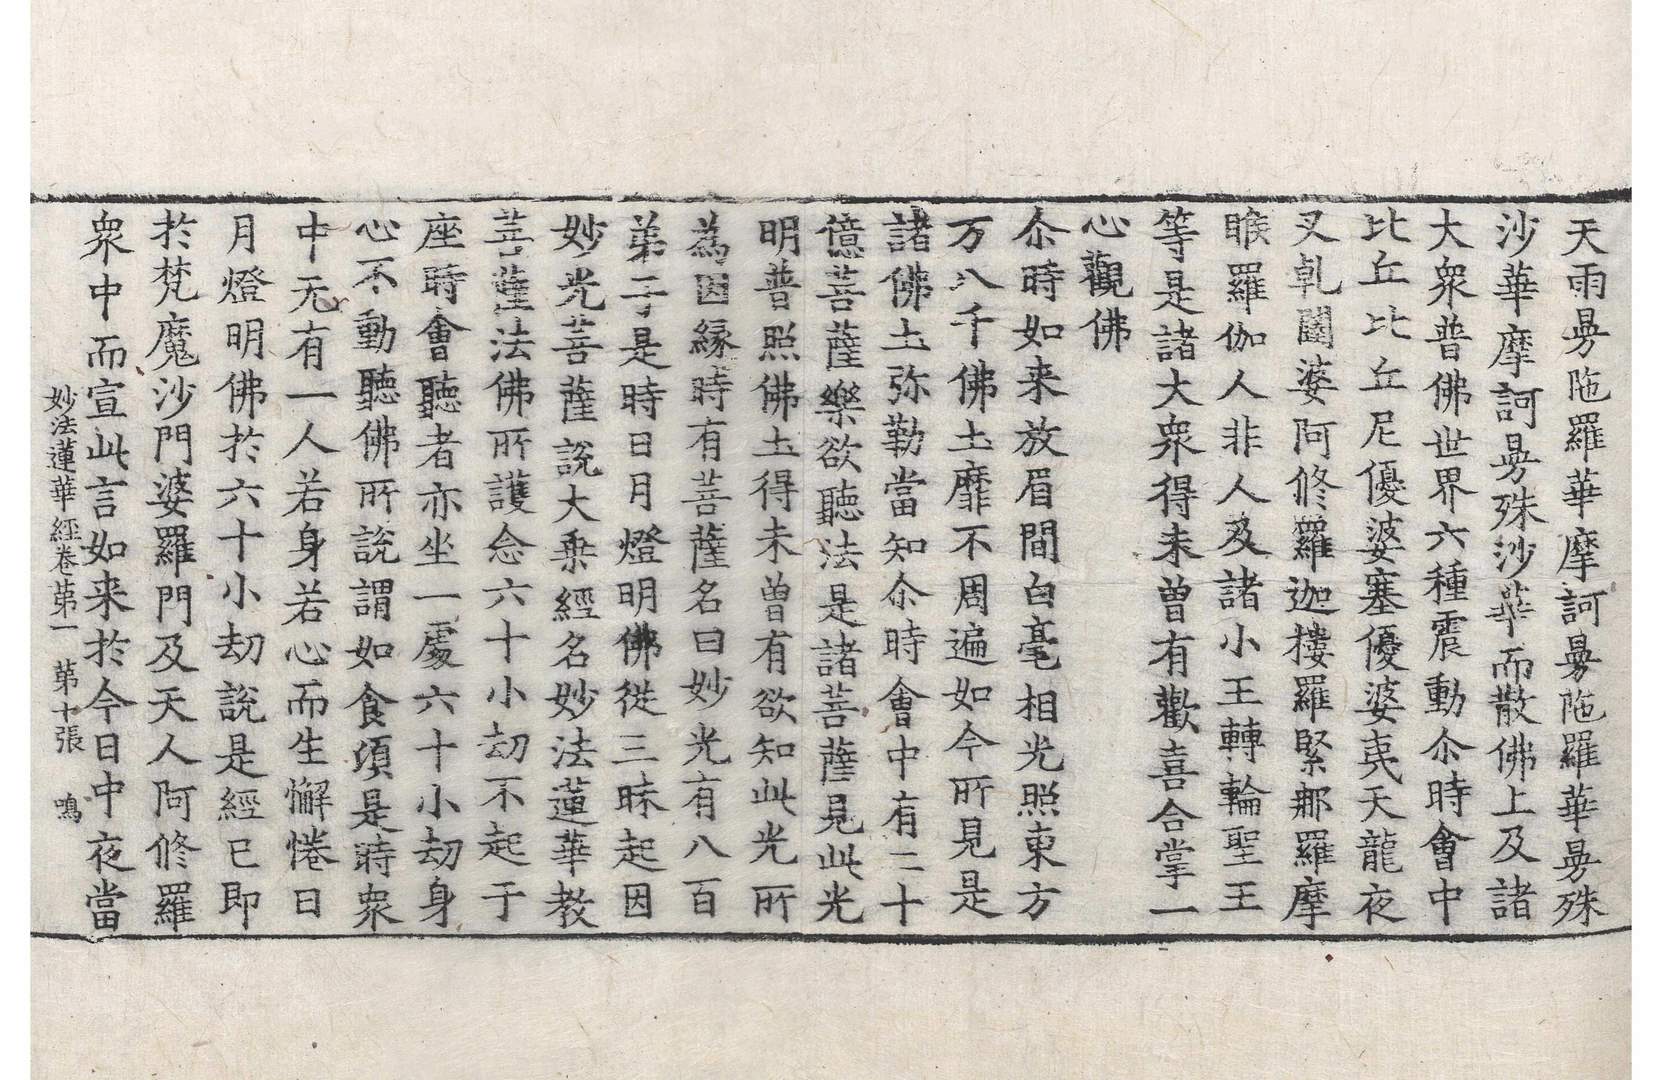 天雨曼陁羅華摩訶曼陁羅華曼殊
沙華摩訶曼殊沙華而散佛上及諸
大衆普佛世界六種震動尒時會中
比丘比丘尼優婆塞優婆夷天龍夜
叉乹闥婆阿修羅迦樓羅緊那羅摩
睺羅伽人非人及諸小王轉輪聖王
等是諸大衆得未曽有歡喜合掌一
心觀佛
尒時如来放眉間白毫相光照東方
万八千佛土靡不周遍如今所見是
諸佛土弥勒當知尒時會中有二十
億菩薩樂欲聽法是諸菩薩見此光
明普照佛土得未曽有欲知此光所
為因縁時有菩薩名曰妙光有八百
弟子是時日月燈明佛從三昧起因
妙光菩薩說大乗經名妙法蓮華教
菩薩法佛所護念六十小劫不起于
座時會聽者亦坐一處六十小劫身
心不動聽佛所說謂如食頃是時衆
中无有一人若身若心而生懈惓日
月燈明佛於六十小劫說是經已即
於梵魔沙門婆羅門及天人阿修羅
衆中而宣此言如来於今日中夜當
妙法蓮華經卷第一 第十張 鳴